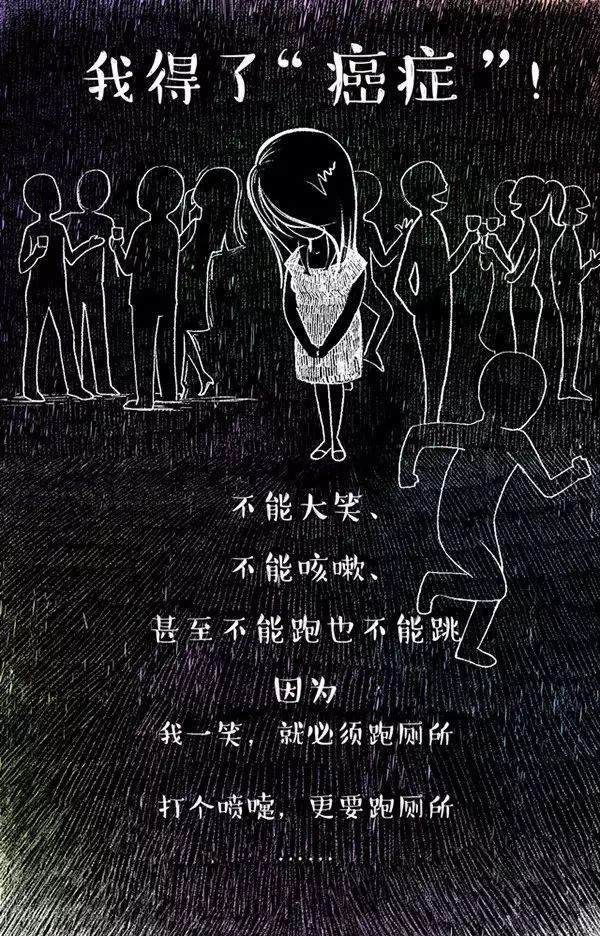 我得了“癌症”！
不能大笑、
不能咳嗽、
甚至不能跑也不能跳
因为
我一笑，就必须跑厕所
打个喷嚏，更要跑厕所
……